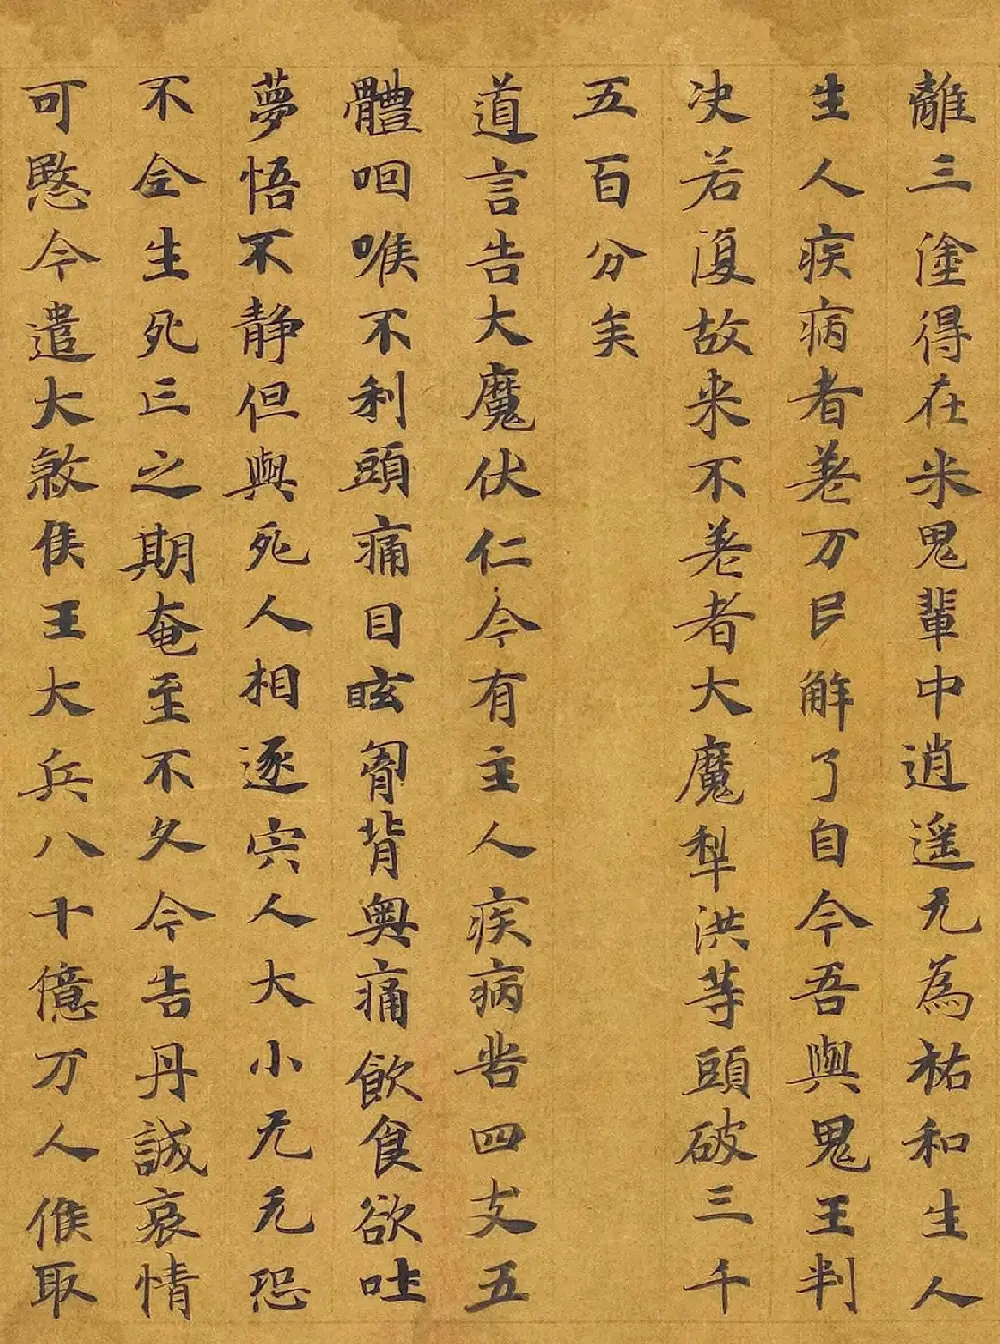 離三塗得在米鬼輩中逍遥无為祐和生人
生人疾病者差万民解了自今吾與鬼王判
决若復故来不差者大魔犁洪等頭破三千
五百分矣
道言告大魔伏仁今有主人疾病苦四支五
體咽喉不利頭痛目眩匈背奥痛飲食欲吐
夢悟不静但與死人相逐宍人大小无无恐
不全生死亡之期奄至不久今告丹誠哀情
可愍今遣大煞侯王大兵八十億万人侯取